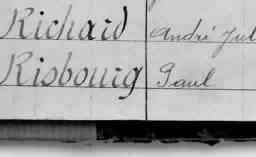 Richard André Jul
Risbourg Paul